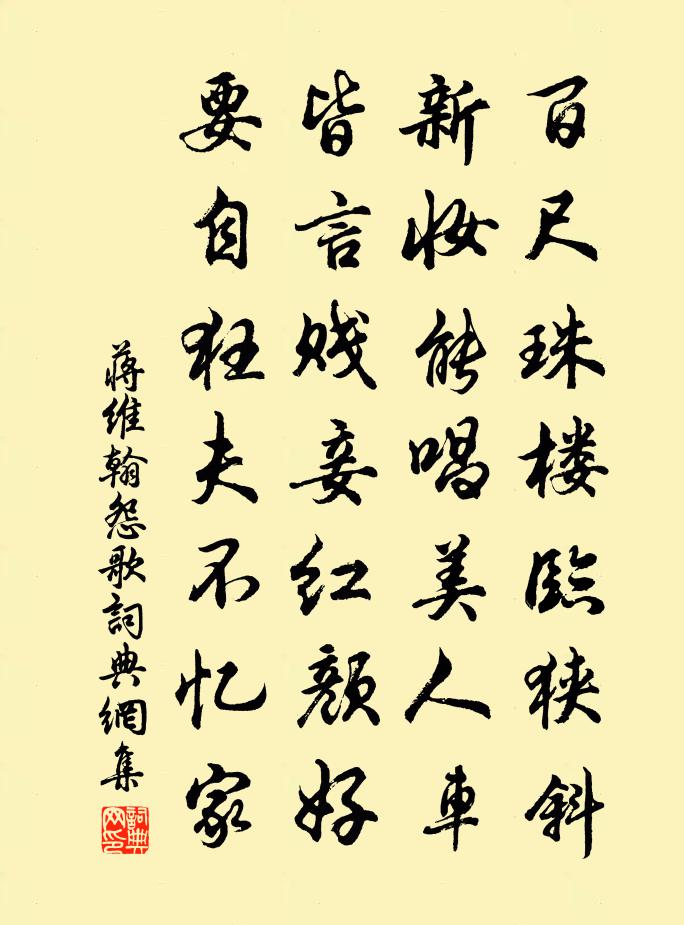 百尺珠楼臨狭斜
新妝能唱美人車
皆言贱妾红颜好
要自狂夫不忆家
蒋維翰怨歌詞典網集
詞典网印